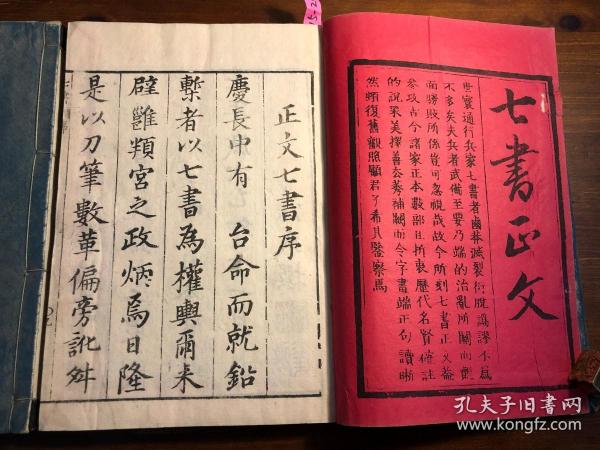 七書正文
世寰通行兵家七書者鹵莽滅裂衍脫譌謬不爲
不多矣夫兵者武備至要乃端的治亂所關而
面勝敗所係豈可忽視哉故今所刻七書正文蓋
參攷古今諸家正本數部且折衷歷代名賢
的説采美擇善公考補闕而令字書端正句讀晰
然頗復舊觀照顧君子希其鑒察焉
正文七書序
慶長中有 台命而就鉛
槧者以七書爲權輿爾来
辟雝頖宮之政炳焉日隆
是以刀筆數革偏旁訛舛
孔夫子旧书网
www.kongfz.com